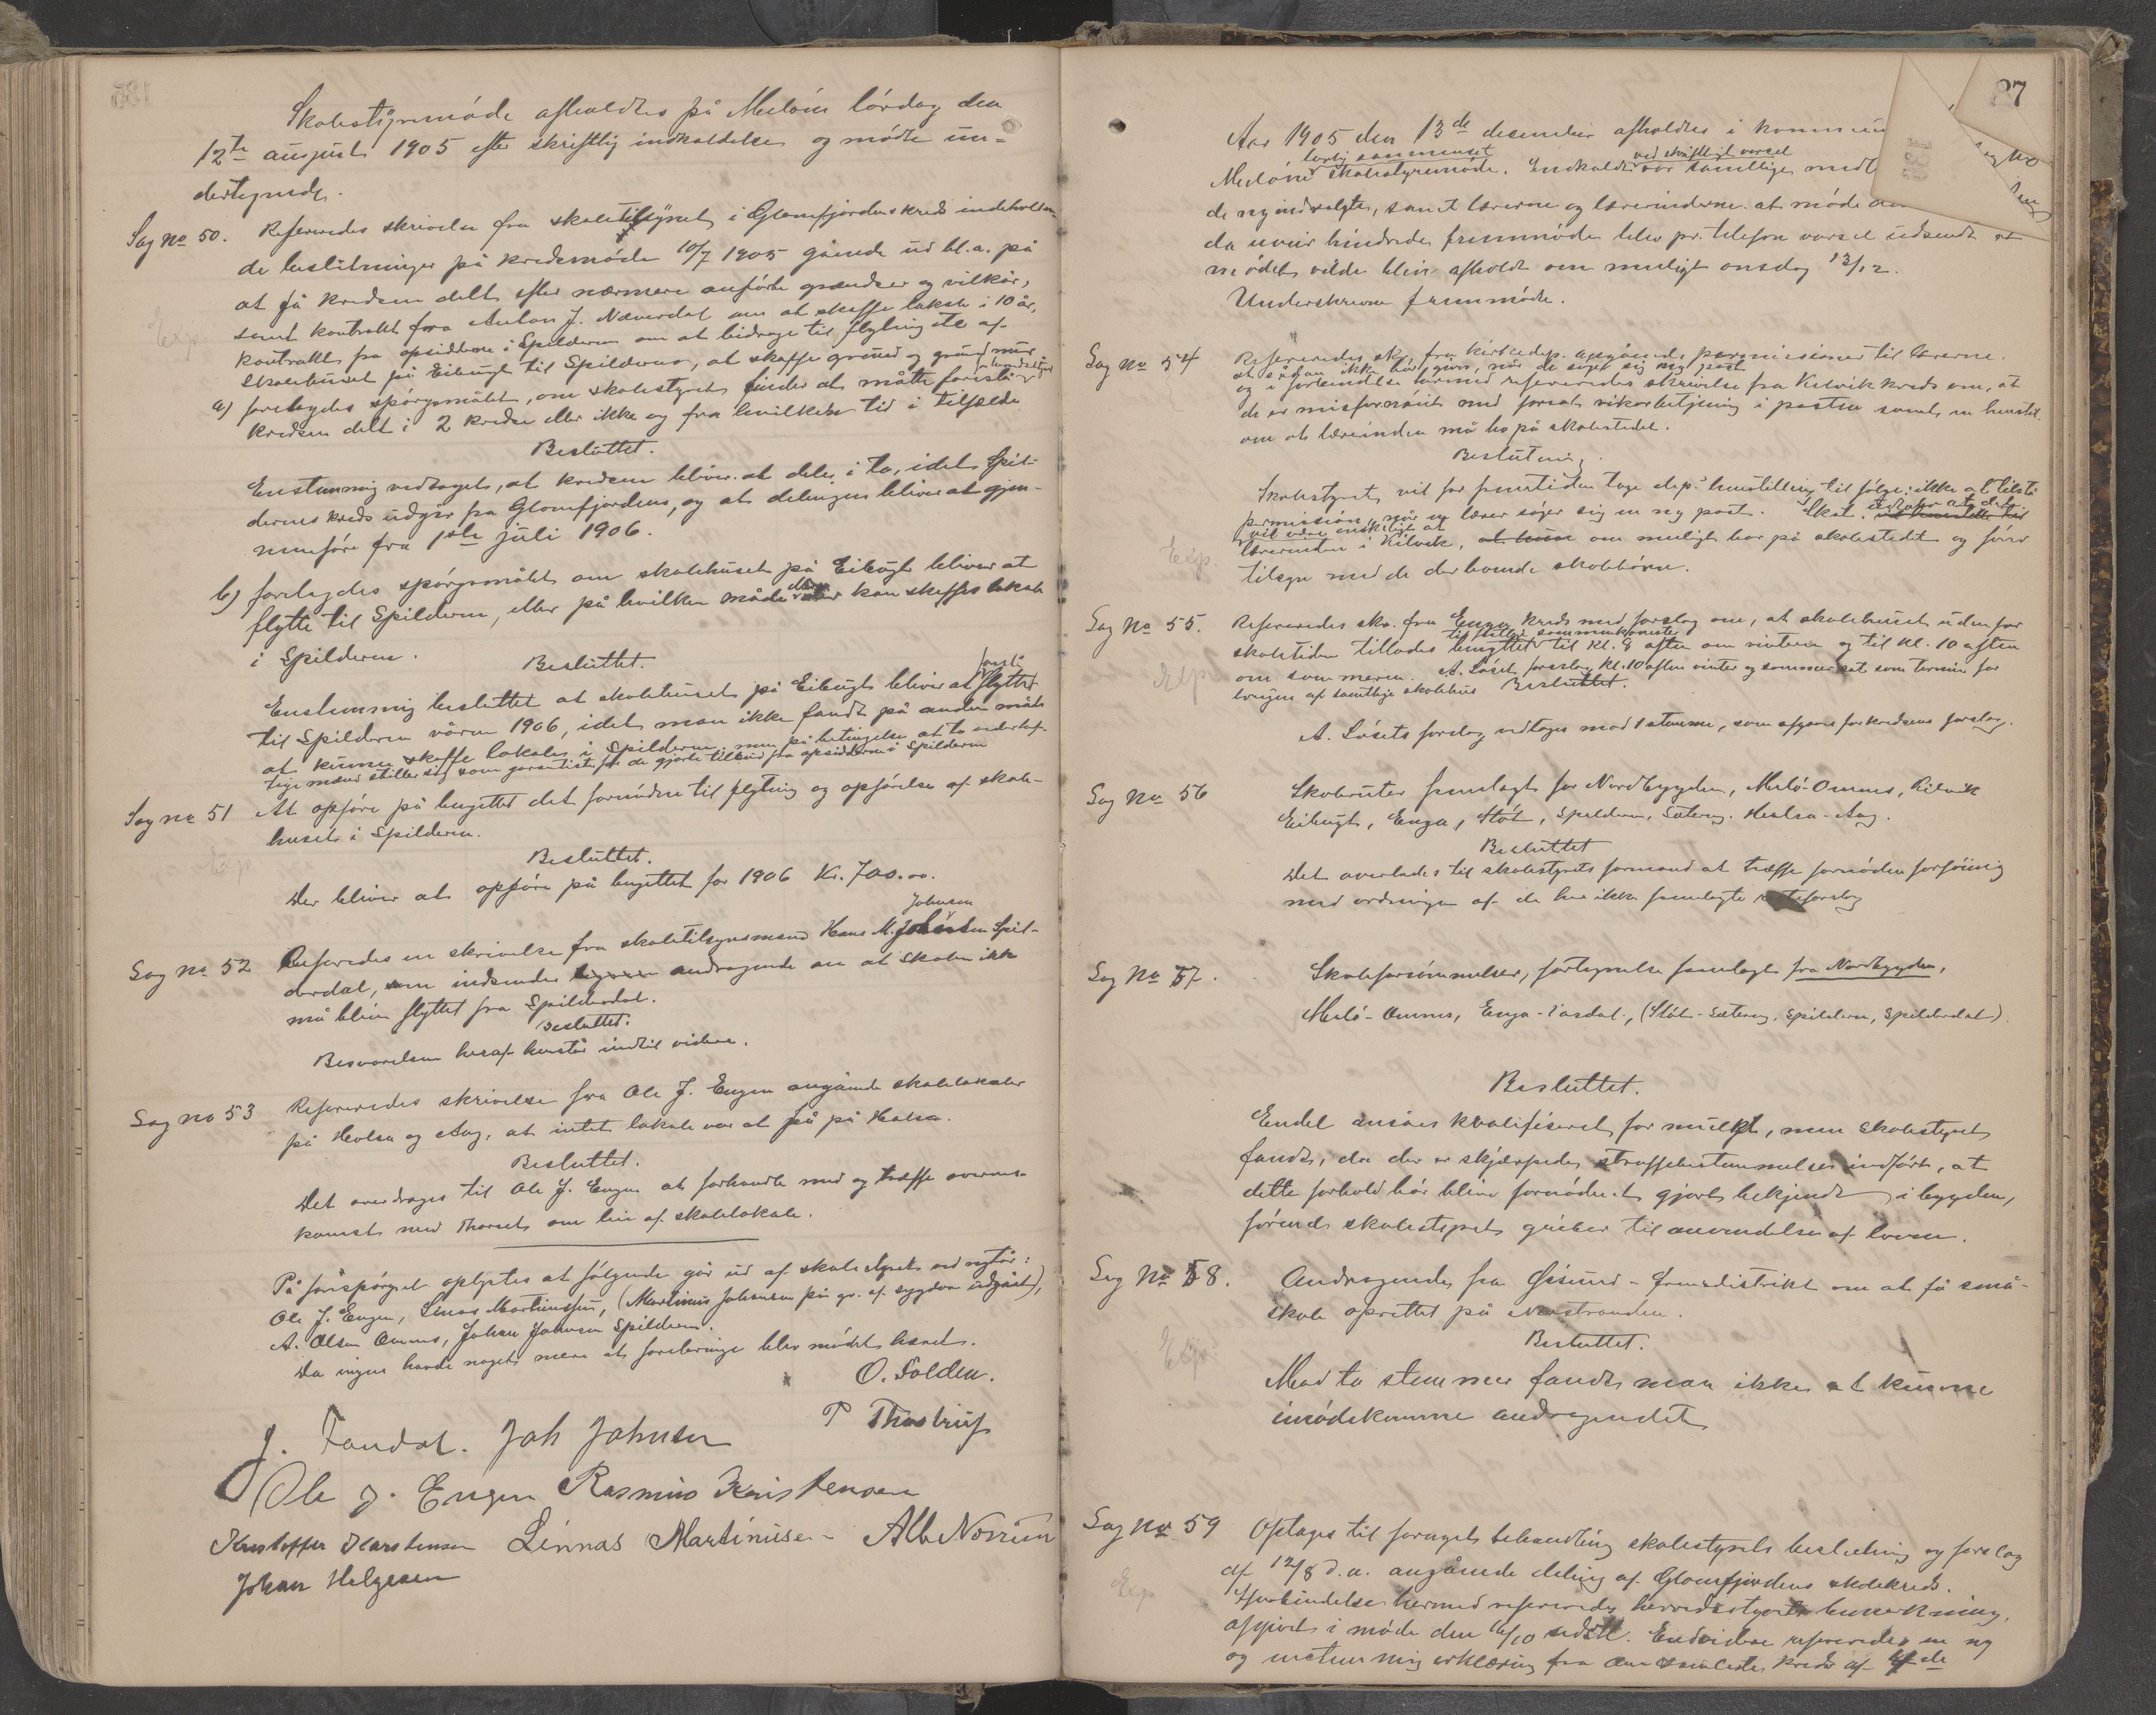 Skolestyremøde afholdtes på Meløen lørdag den
12te august 1905 efter skriftlig indkaldelse og mødte un-
dertegnede.
Sag no 50. Refereredes skrivelse fra skoletilsynet i Glomfjordens kreds indeholden
de beslutninger på kredsmøde 10/7 1905 gående ud bl.a. på
at få kredsen delt efter nærmere anførte grændser og vilkår,
samt kontrakt fra Anton J. Næverdal om at skaffe lokale i 10 år,
Exp. kontrakt fra opsidderne i Spilderen om at bidrage til flytningste af
skolehuset på Eibugt til Spilderen, at skaffe grund og grundmur
a) forelagdes spørgsmålet, om skolestyret finder at måtte foreslå
kredsen delt i 2 kredse eller ikke og fra hvilken tid i tilfælde
Besluttet.
Enstemmig vedtaget, at kredsen bliver at dele i to, idet Spil-
derens kreds udgår fra Glomfjordens, og at delingen bliver at gjen-
nemføre fra 1ste juli 1906.
b) forelagdes spørgsmålet om skolehuset på Eibugt bliver at
flytte til Spilderen, eller på hvilken måde der kan skaffes lokale
i Spilderen.
Besluttet.
foreslå
Enstemmig besluttet at skolehuset på Eibugt bliver at flyttet
til Spilderen våren 1906, idet man ikke fandt på anden måde
at kunne skaffe lokaler i Spilderen, men på betingelse at to vederhef-
tige mænd stiller sig som garantister for de gjorte tilbud fra opsidderne i Spilderen
Sag no 51 At opføre på bugettet det fornødne til flytning og opførelse af skole-
huset i Spilderen.
Exp.
Besluttet.
Der bliver at opføre på bugettet for 1906 Kr. 700.00.
Johnsen
Sag no 52 Refereredes en skrivelse fra skoletilsynsmand Hans M. Spil-
derdal, som indsender andragende om at skolen ikke
må blive flyttet fra Spilderdal.
Besluttet.
Besvarelsen heraf henstår indtil videre.
Sag no 53 Refereredes skrivelse fra Ole J. Engen angående skolelokaler
på Halsa og Aag, at intet lokale var at få på Halsa.
Besluttet.
Det overdrages til Ole J. Engen at forhandle med og træffe overens-
komst med Thorset om leie af skolelokale.
På forespørgsel oplystes at følgende går ud af skolestyret ved nytår:
Ole J. Engen, Linas Martinussen, (Martinus Johansen på gr. af sygdom udgået),
A. Olsen Ømnes, Johan Johnsen Spilderen.
Da ingen havde noget mere at forebringe blev mødet hævet.
O. Solden.
P Thostrup
J. Fondal. Joh Johnsen
Ole J. Engen Rasmus Kristensen
Kristoffer Karstensen Linnas Martinusen Alb Norrum
Johan Helgesen
87
Aar 1905 den 13de december afholdtes i kommun
lovlig sammensat ved skriftligt varsel
Meløens skolestyremøde. Indkaldt var samtlige medl
de nyindvalgte, samt lærerne og lærerinderne at møde
da uveir hindrede fremmøde blev pr. telefon varsel udsendt at
mødet vilde blive afholdt om muligt onsdag 13/12.
Underskrevne fremmødte.
Sag No 54 Refereredes skr. fra kirkedep. angående permissioner til lærerne.
at sådan ikke bør gives, når de søger sig ny post
og i forbindelse hermed refereredes skrivelse fra Kilvik kreds om, at
de er misfornøiet med forsat vikarbetjening i posten samt en henstil.
om at lærerinden må bo på skolestedet.
Beslutning.
Skolestyret vil for fremtiden tage dep.s henstilling til følge: ikke at tilstå
permission, når en lærer søger sig en ny post. Skst. udtaler at det
vil være ønskeligt at
Exp. lærerinden i Kilvik, at hun om muligt bor på skolestedet og fører
tilsyn med de derboende skolebørn.
Sag No 55. Refereredes skr. fra Enga kreds med forslag om, at skolehuset udenfor
til stille sammenkomster
skoletiden tillades benyttet til kl. 8 aften om vinteren og til kl. 10 aften
Exp. om sommeren. A. Løset foreslog kl. 10 aften vinter og sommer sat som termin for
brugen af samtlige skolehus Besluttet.
A. Løsets forslag vedtages mod 1 stemme, som afgaves for kredsens forslag.
Sag No 56 Skoleruter fremlagt for Nordbygden, Meløi-Ømnes, Kilvik
Eibugt, Enga, Støt, Spilderen, Sætervig. Halsa-Aag.
Besluttet
Det overlades til skolestyrets formand at træffe fornøden forføining
med ordningen af de her ikke fremlagte ruteforslag
Sag No 57. Skoleforsømmelser, fortegnelse fremlagt fra Nordbygden,
Melø-Ømnes, Enga-Vasdal, (Støt-Sætervig, Spilderen, Spilderdal).
Besluttet.
Endel ansåes kvalifiseret for mulkt, men skolestyret
fandt, da der er skjærpede straffebestemmelser indført, at
dette forhold bør blive fornødent gjort bekjendt i bygden,
førend skolestyret griber til anvendelse af loven.
Sag No 58. Andragende fra Ørsund-Grømdistrikt om at få små-
skole oprettet på Næstranden.
Besluttet.
Exp. Mod to stemmer fandt man ikke at kunne
imødekomme andragendet
Sag No 59 Optages til fornyet behandling skolestyrets beslutning og forslag
af 12/8 d.a. angående deling af Glomfjordens skolekreds.
Exp I forbindelse hermed refereredes herredsstyrets bemerkning,
afgivet i møde den 6/10 sidstl. Endvidere refereredes en ny
og enstemmig erklæring fra den samlede kreds af